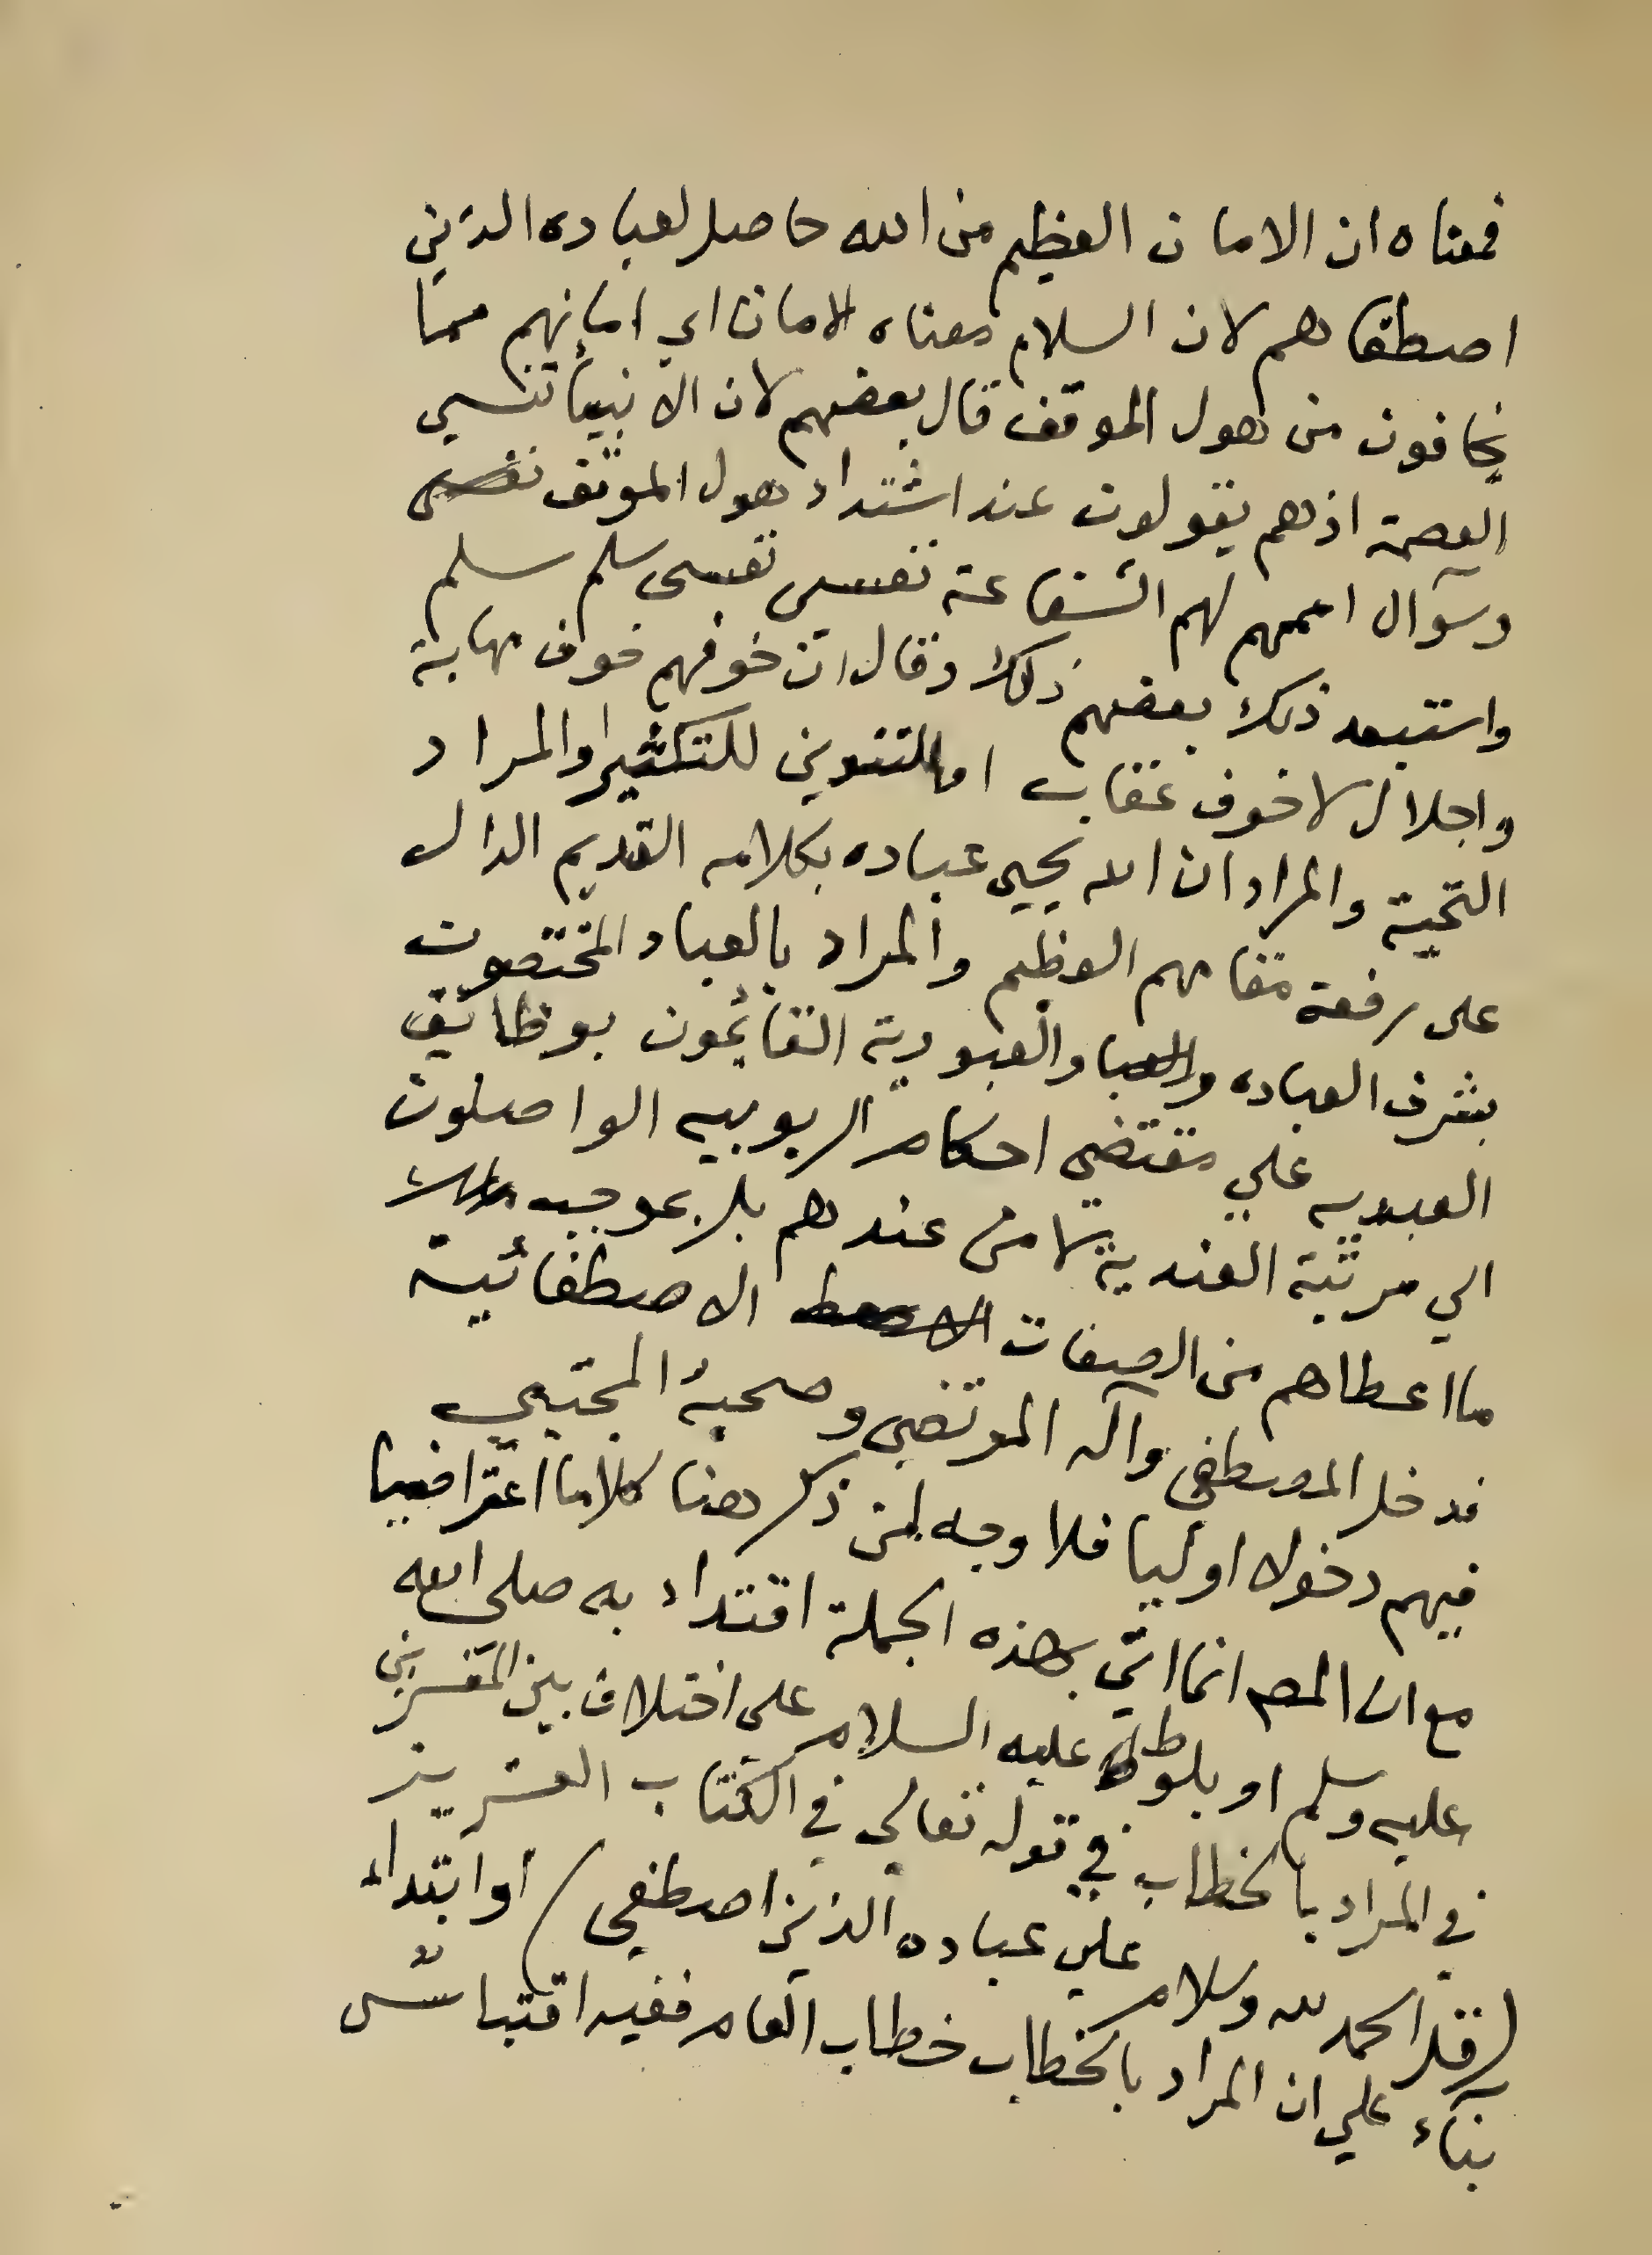 فمعناه ان الامان العظيم من الله حاصل لعباده الذين
اصطفاهم لان السلام معناه الامان اي امانهم مما
يخافون من هول الموقف قال بعضهم لان الانبيا تنسي
العصمة اذ هم يقولون عند اشتداد هول الموقف
وسؤال اممهم لهم الشفاعة نفسي نفسي سلم سلم
واستبعد ذلك بعضهم ذلك وقال ان خوفهم خوف مهابة
واجلال لا خوف عقاب اما للتنوين للتكثير او المراد
التحية والمراد ان الله يحيي عباده بكلامه القديم الدال
على رفعة مقامهم العظيم والمراد بالعباد المختصون
بشرف العباده والعبا والعبودية القائمون بوظائف
العبديه علي مقتضى احكام الربوبيه الواصلون
الي مرتبة العندية لا من عندهم بل بموجب
ما اعطاهم من الصفات الاصط الاصطفائية
فدخل المصطفى وآله المرتضى وصحبه المجتبي
فيهم دخولا اوليا فلا وجه لمن ذكر هنا كلاما اعتراضيا
مع ان المصم انما اتي بهذه الجملة اقتداء به صلى الله
عليه وسلم او بلوط عليه السلام على اختلاف بين المفسرين
في المراد بالخطاب في قوله تعالى في الكتاب العزيز
(قل الحمد لله وسلام علي عباده الذين اصطفى) او ابتداء
بناء علي ان المراد بالخطاب خطاب العام ففيه اقتباس